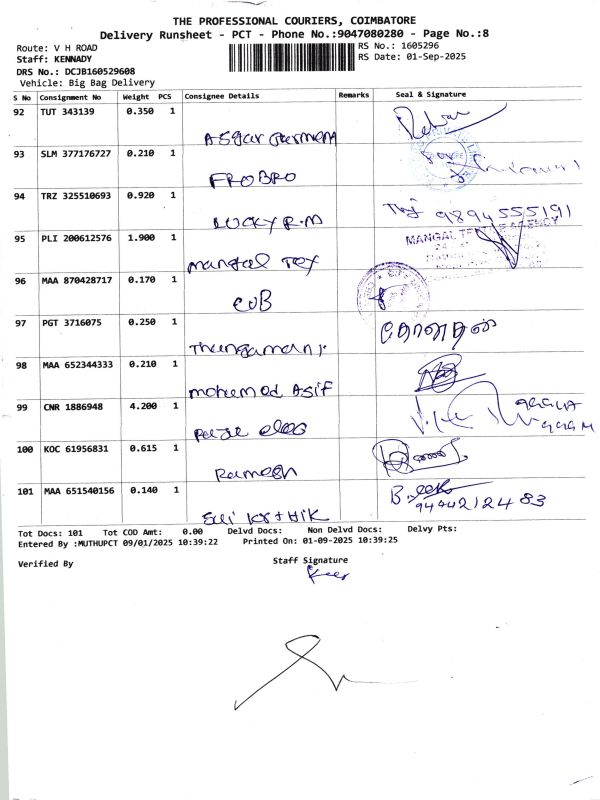 THE PROFESSIONAL COURIERS, COIMBATORE
Delivery Runsheet - PCT - Phone No.:9047080280 - Page No.:8
Route: V H ROAD
RS No.: 1605296
Staff: KENNADY
RS Date: 01-Sep-2025
DRS No.: DCJB160529608
Vehicle: Big Bag Delivery
S No Consignment No Weight PCS Consignee Details Remarks Seal & Signature
92 TUT 343139 0.350 1
93 SLM 377176727 0.210 1
FROBRO
94 TRZ 325510693 0.920 1
LUCKY R.M
9894555191
95 PLI 200612576 1.900 1
mangal Tex
MANGAL
96 MAA 870428717 0.170 1
CUB
97 PGT 3716075 0.250 1
Thangamani
98 MAA 652344333 0.210 1
mohemod Asif
99 CNR 1886948 4.200 1
100 KOC 61956831 0.615 1
Ramesh
101 MAA 651540156 0.140 1
9444212483
Tot Docs: 101 Tot COD Amt: 0.00 Delvd Docs: Non Delvd Docs: Delvy Pts:
Entered By :MUTHUPCT 09/01/2025 10:39:22 Printed On: 01-09-2025 10:39:25
Verified By
Staff Signature